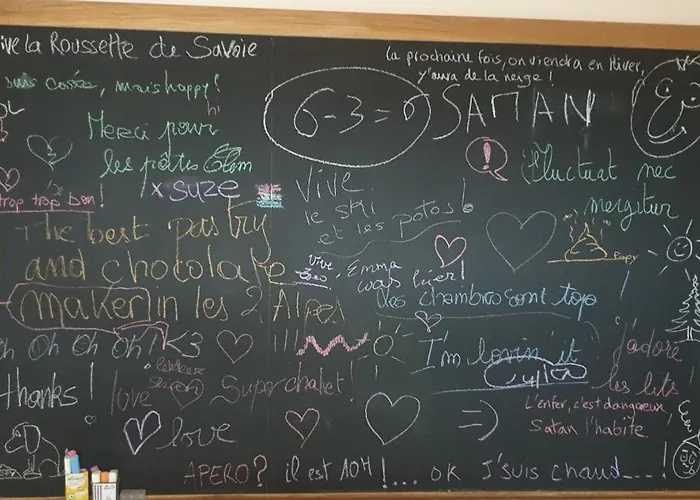 Vive la Roussette de Savoie
la prochaine fois, on viendra en Hiver,
y'aura de la neige !
suis cassée, mais happy !
hi
6-3=6
SATAN
Merci pour
les pâtes
Fluctuat nec
mergitur
x suze
trop trop bon !
Vive
le ski
et les potos !
The best pastry
and chocolate
maker in les 2 Alpes
vive
Emma
was hier !
Papy
les chambres sont top !
oh oh oh oh ! <3
!!!
I'm lovin' it
j'adore
les lits !
thanks !
love
Super chalet !
L'enfer, c'est dangereux,
Satan l'habite
love
=)
APERO? il est 10H !... ok J'suis chaud...